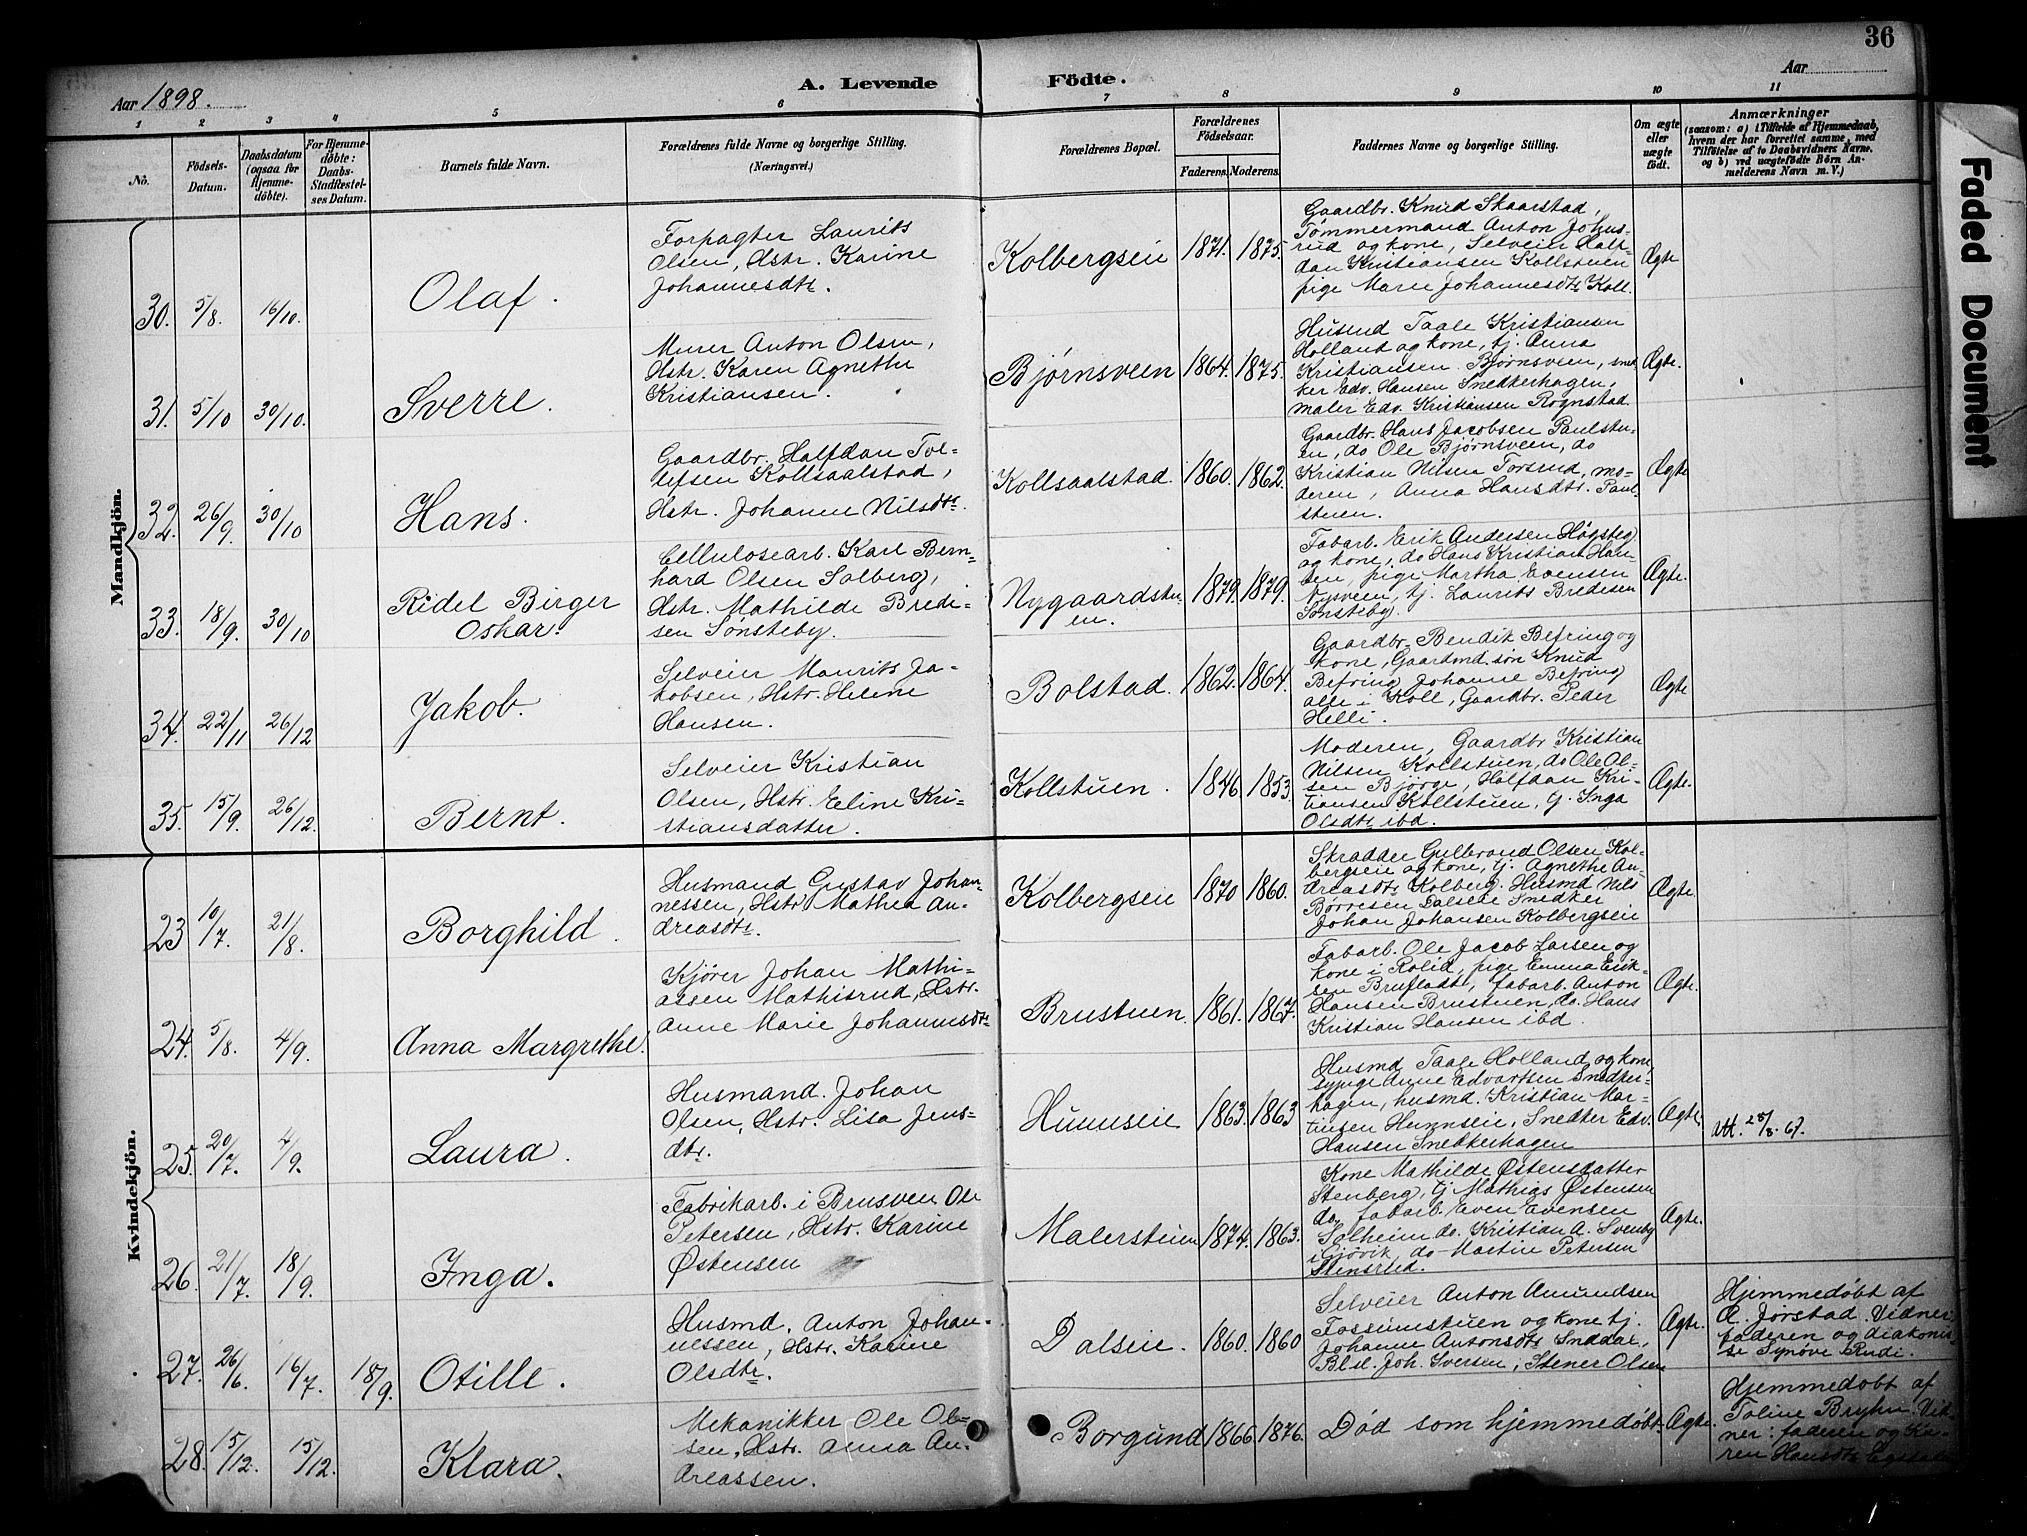 36
Aar 1898.
A. Levende Födte.
Aar
1 2 3 4 5 6 7 8 9 10 11
No.
Födsels-Datum.
Daabsdatum (ogsaa for Hjemmedöbte).
For Hjemmedöbte: Daabs-Stadfæstelses Datum.
Barnets fulde Navn.
Forældrenes fulde Navne og borgerlige Stilling.
(Næringsvei.)
Forældrenes Bopæl.
Forældrenes Födselsaar.
Faderens. Moderens.
Faddernes Navne og borgerlige Stilling.
Om ægte eller uægte födt.
Anmærkninger
(saasom: a) i Tilfælde af Hjemmedaab, hvem der har forrettet samme, med Tilföielse af to Daabsvidners Navne, og b) ved uægtefödte Börn Anmelderens Navn m. V.)
Mandkjön.
30. 5/8. 16/10. Olaf.
Forpagter Laurits
Olsen, Hstr. Karine
Johannesdtr.
Kolbergseie 1871. 1875.
Gaardbr. Knud Skaarstad,
Tømmermand Anton Johns-
rud og kone, Selveier Half-
dan Kristiansen Kollstuen
pige Marie Johannesdtr Koll.
Ægte
31. 5/10 30/10. Sverre.
Murer Anton Olsen,
Hstr. Karen Agnethe
Kristiansen.
Bjørnsveen 1864. 1875.
Husmd Taale Kristiansen
Holland og kone, tj. Anna
Kristiansen Bjørnsveen, sned
ker Edv. Hansen Snedkerhagen,
maler Edv. Kristiansen Rognstad.
Ægte.
32. 26/9. 30/10 Hans.
Gaardbr. Halfdan Tol-
lefsen Kollsaalstad,
Hstr. Johanne Nilsdtr.
Kollsaalstad. 1860. 1862.
Gaardbr. Hans Jacobsen Paulstu-
en, do Ole Bjørnsveen, do
Kristian Nilsen Torsrud, mo-
deren, Anna Hansdtr. Paul-
stuen.
Ægte
33. 18/9. 30/10 Ridel Birger
Oskar.
Cellulosearb. Karl Bern-
hard Olsen Solberg,
Hstr. Mathilde Brede-
sen Sønsteby.
Nygaardstu-
en. 1879. 1879.
Fabarb. Erik Andersen Høgsteg
og kone, do Hans Kristian Han-
sen, pige Martha Evensen
Nysveen, tj. Laurits Bredesen
Sønsteby.
Ægte.
34. 22/11 26/12 Jakob.
Selveier Maurits Ja-
kobsen, Hstr. Helene
Hansen.
Bolstad. 1862. 1864.
Gaardbr. Bendik Befring og
kone, Gaardmd. søn Knud
Befring, Johanne Befring
alle i Koll, Gaardbr. Peder
Helli.
Ægte
35. 15/9. 26/12. Bernt.
Selveier Kristian
Olsen, Hstr. Eline Kri-
stiansdatter.
Kollstuen. 1846. 1853.
Moderen, Gaardbr Kristian
Nilsen Kollstuen, do Ole Ol-
sen Bjørge, Halfdan Kri-
tiansen Kollstuen, tj. Inga
Olsdtr ibd.
Ægte.
Kvindekjön.
23 10/7. 21/8. Borghild.
Husmand Gustav Johan-
nessen, Hstr Mathea An-
dreasdtr.
Kolbergseie 1870 1860.
Skrædder Gulbrand Olsen Kol-
bergseie og kone, tj. Agnethe An-
dreasdtr Kolberg. Husmd Nils
Børresen Dalseie Snedker
Johan Johansen Kolbergseie
Ægte.
24. 5/8. 4/9. Anna Margrethe.
Kjører Johan Mathi-
assen Mathisrud, Hstr.
Anne Marie Johannesdtr
Brustuen. 1861. 1867.
Fabarb. Ole Jacob Larsen og
kone i Rolid, pige Emma Erik-
sen Brufladt, fabarb. Anton
Hansen Brustuen, do. Hans
Kristian Hansen ibd.
Ægte.
25. 20/7. 4/9. Laura.
Husmand. Johan
Olsen, Hstr. Lisa Jens-
dtr.
Hunnseie 1863. 1863
Husmd Taale Holland og kone,
sypige Anne Edvartsen Snedker-
hagen, husmd. Kristian Mar-
tinsen Hunnseie, Snedker Edv.
Hansen Snedkerhagen
Ægte.
Att. 28/8. 67.
26. 21/7. 18/9. Inga.
Fabrikarb. i Brusveen Ole
Petersen, Hstr. Karine
Østensen
Malerstuen 1874. 1863.
Kone Mathilde Østensdatter
Stenberg, tj Mathias Østensen
do, fabarb. Even Evensen
Solheim do. Kristian A. Svenby
i Gjøvik, do Martin Petersen
Stensrud.
Ægte.
27. 26/6. 16/7. 18/9. Otille.
Husmd. Anton Johan-
nessen, Hstr. Karine
Olsdtr.
Dalseie. 1860. 1860
Selveier Anton Amundsen
Fossumstuen og kone tj.
Johanne Antonsdtr Snddal,
Blsl. Joh. Iversen, Stener Olsen
Ægte.
Hjemmedøbt af
O. Jørstad. Vidner:
faderen og diakonis-
se Synøve Rudi.
28. 15/12. 15/12. Klara.
Mekanikker Ole Ol-
sen, Hstr. Anna An-
dreassen.
Borgund 1866. 1876.
Død som hjemmedøbt.
Ægte.
Hjemmedøbt af
Toline Bryhn. Vid-
ner: faderen og Ka-
ren Hansdtr Egstad
Faded Document